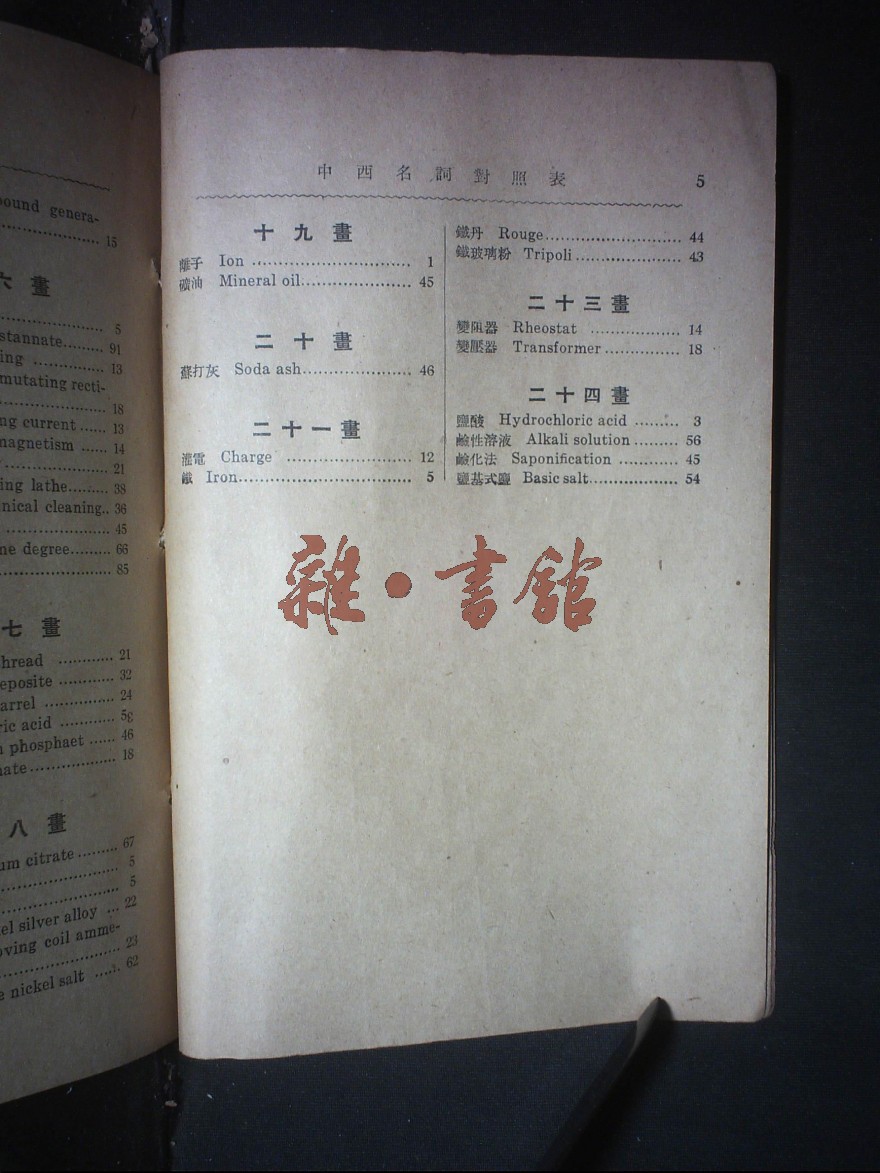 ound genera-
15
六畫
5
stannate 91
ing 13
mutating recti-
18
ng current 13
magnetism 14
21
ing lathe 38
nical cleaning.. 36
45
ne degree 66
85
七畫
hread 21
eposite 32
arrel 24
ric acid 5g
phosphaet 46
nate 18
八畫
um citrate 67
5
5
el silver alloy 22
oving coil amme-
23
e nickel salt 62
中西名詞對照表 5
十九畫
離子 Ion 1
礦油 Mineral oil 45
二十畫
蘇打灰 Soda ash 46
二十一畫
灌電 Charge 12
鐵 Iron 5
鐵丹 Rouge 44
鐵玻璃粉 Tripoli 43
二十三畫
變阻器 Rheostat 14
變壓器 Transformer 18
二十四畫
鹽酸 Hydrochloric acid 3
鹼性溶液 Alkali solution 56
鹼化法 Saponification 45
鹽基式鹽 Basic salt 54
雜·書館